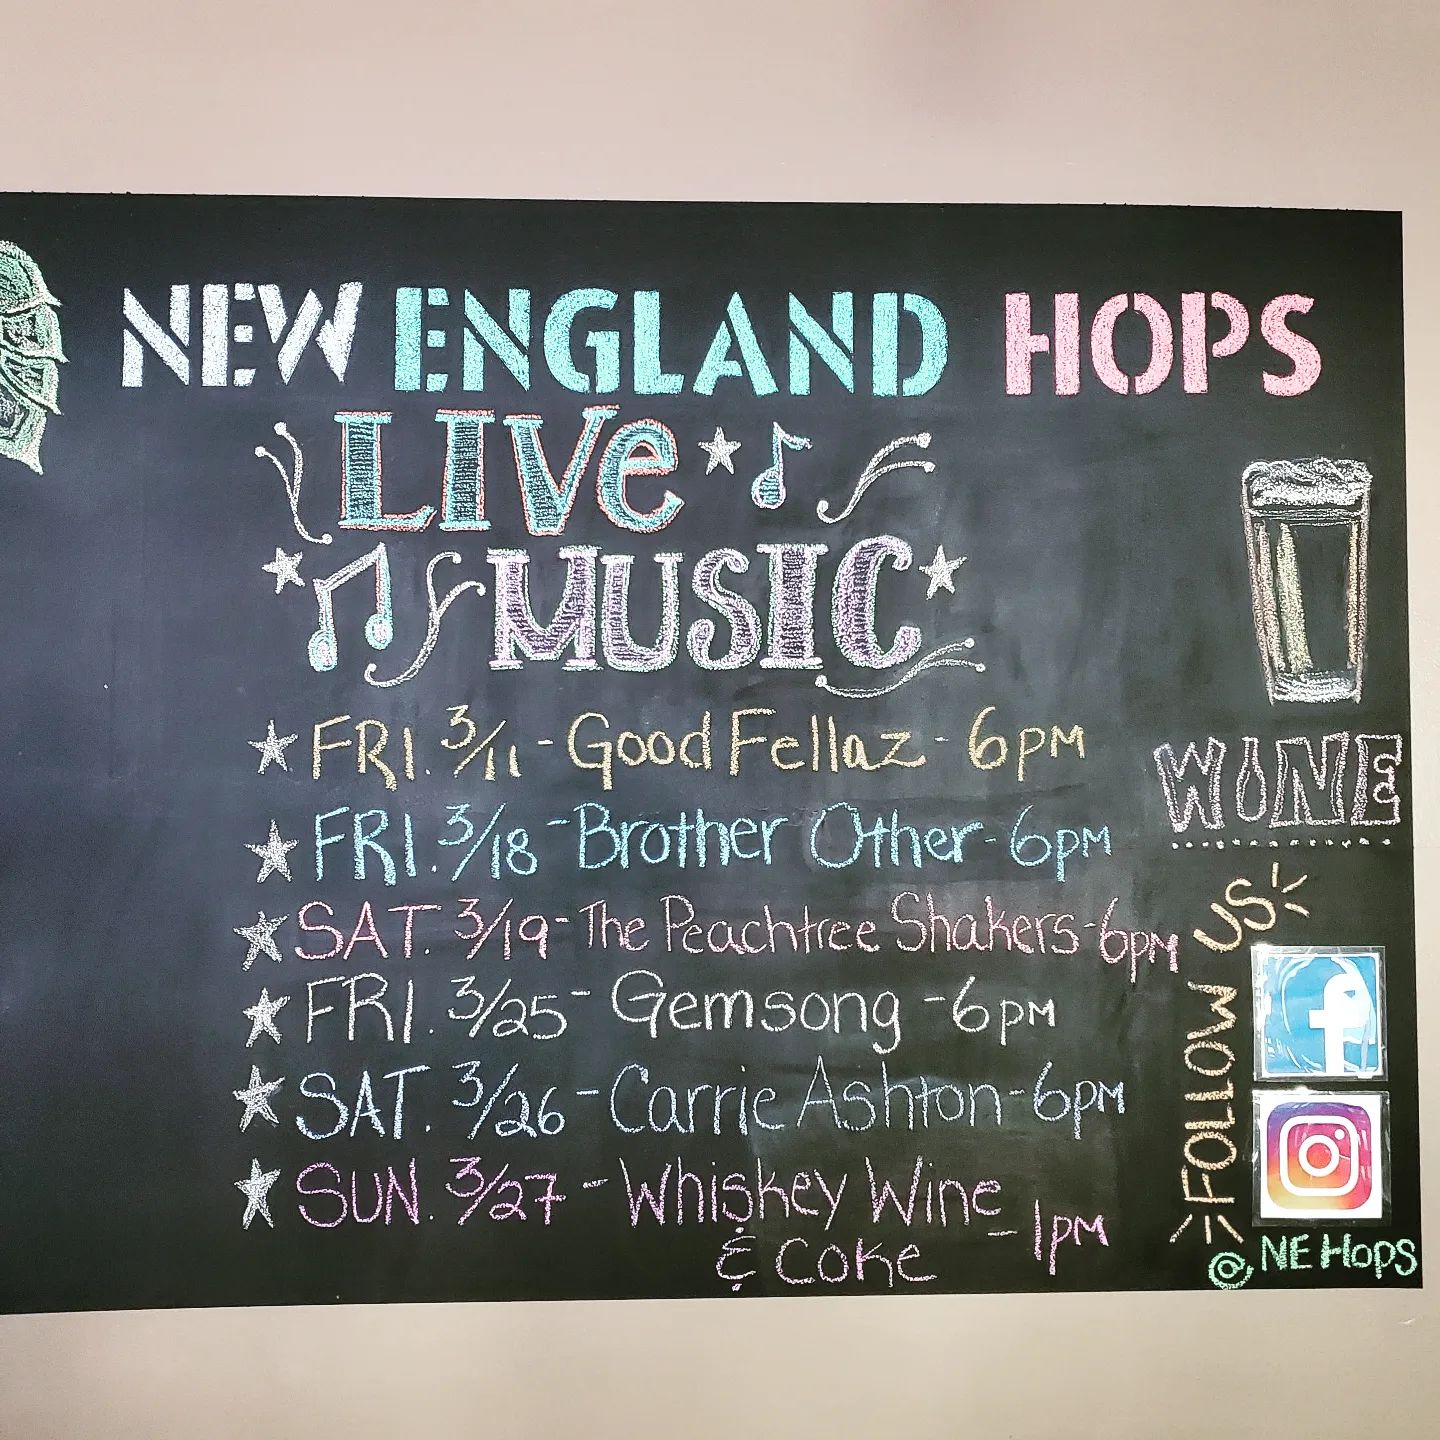 NEW ENGLAND HOPS
LIVe
MUSIC
FRI. 3/11 - Good Fellaz - 6PM
FRI. 3/18 - Brother Other - 6PM
SAT. 3/19 - The Peachtree Shakers - 6PM
FRI. 3/25 - Gemsong - 6PM
SAT. 3/26 - Carrie Ashton - 6PM
SUN. 3/27 - Whiskey Wine
& COKE - 1PM
WINE &
FOLLOW US
f
@ NE HOPS